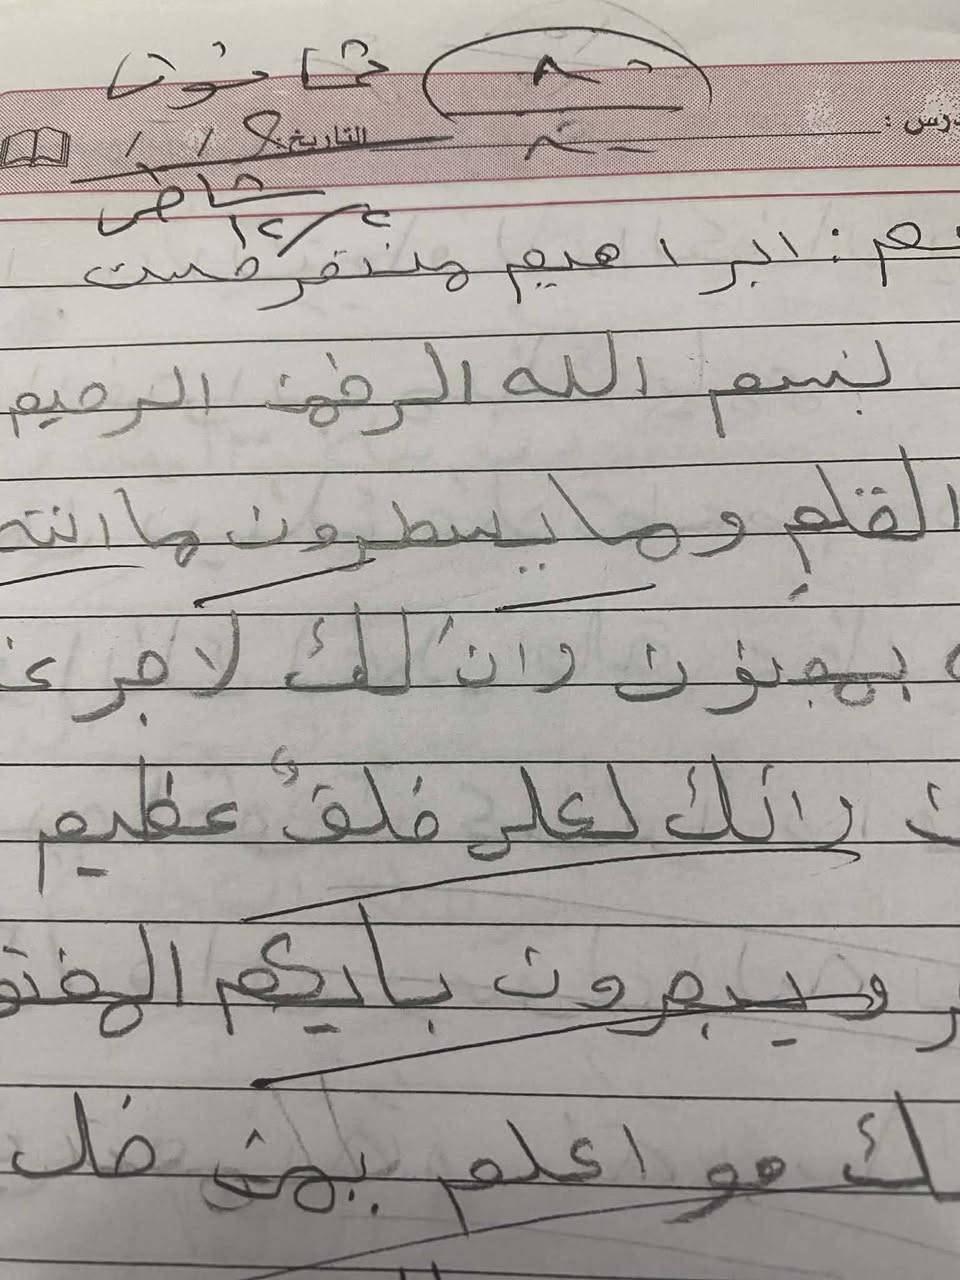 ٨٠ ثمانون
درس :
التاريخ / /
ابراهيم
بسم الله الرحمن الرحيم
القلم وما يسطرون ما انت
بمجنون وان لك لاجر
وانك لعلى خلق عظيم
ويبصرون باييكم المفتو
ك هو اعلم بمن ضل